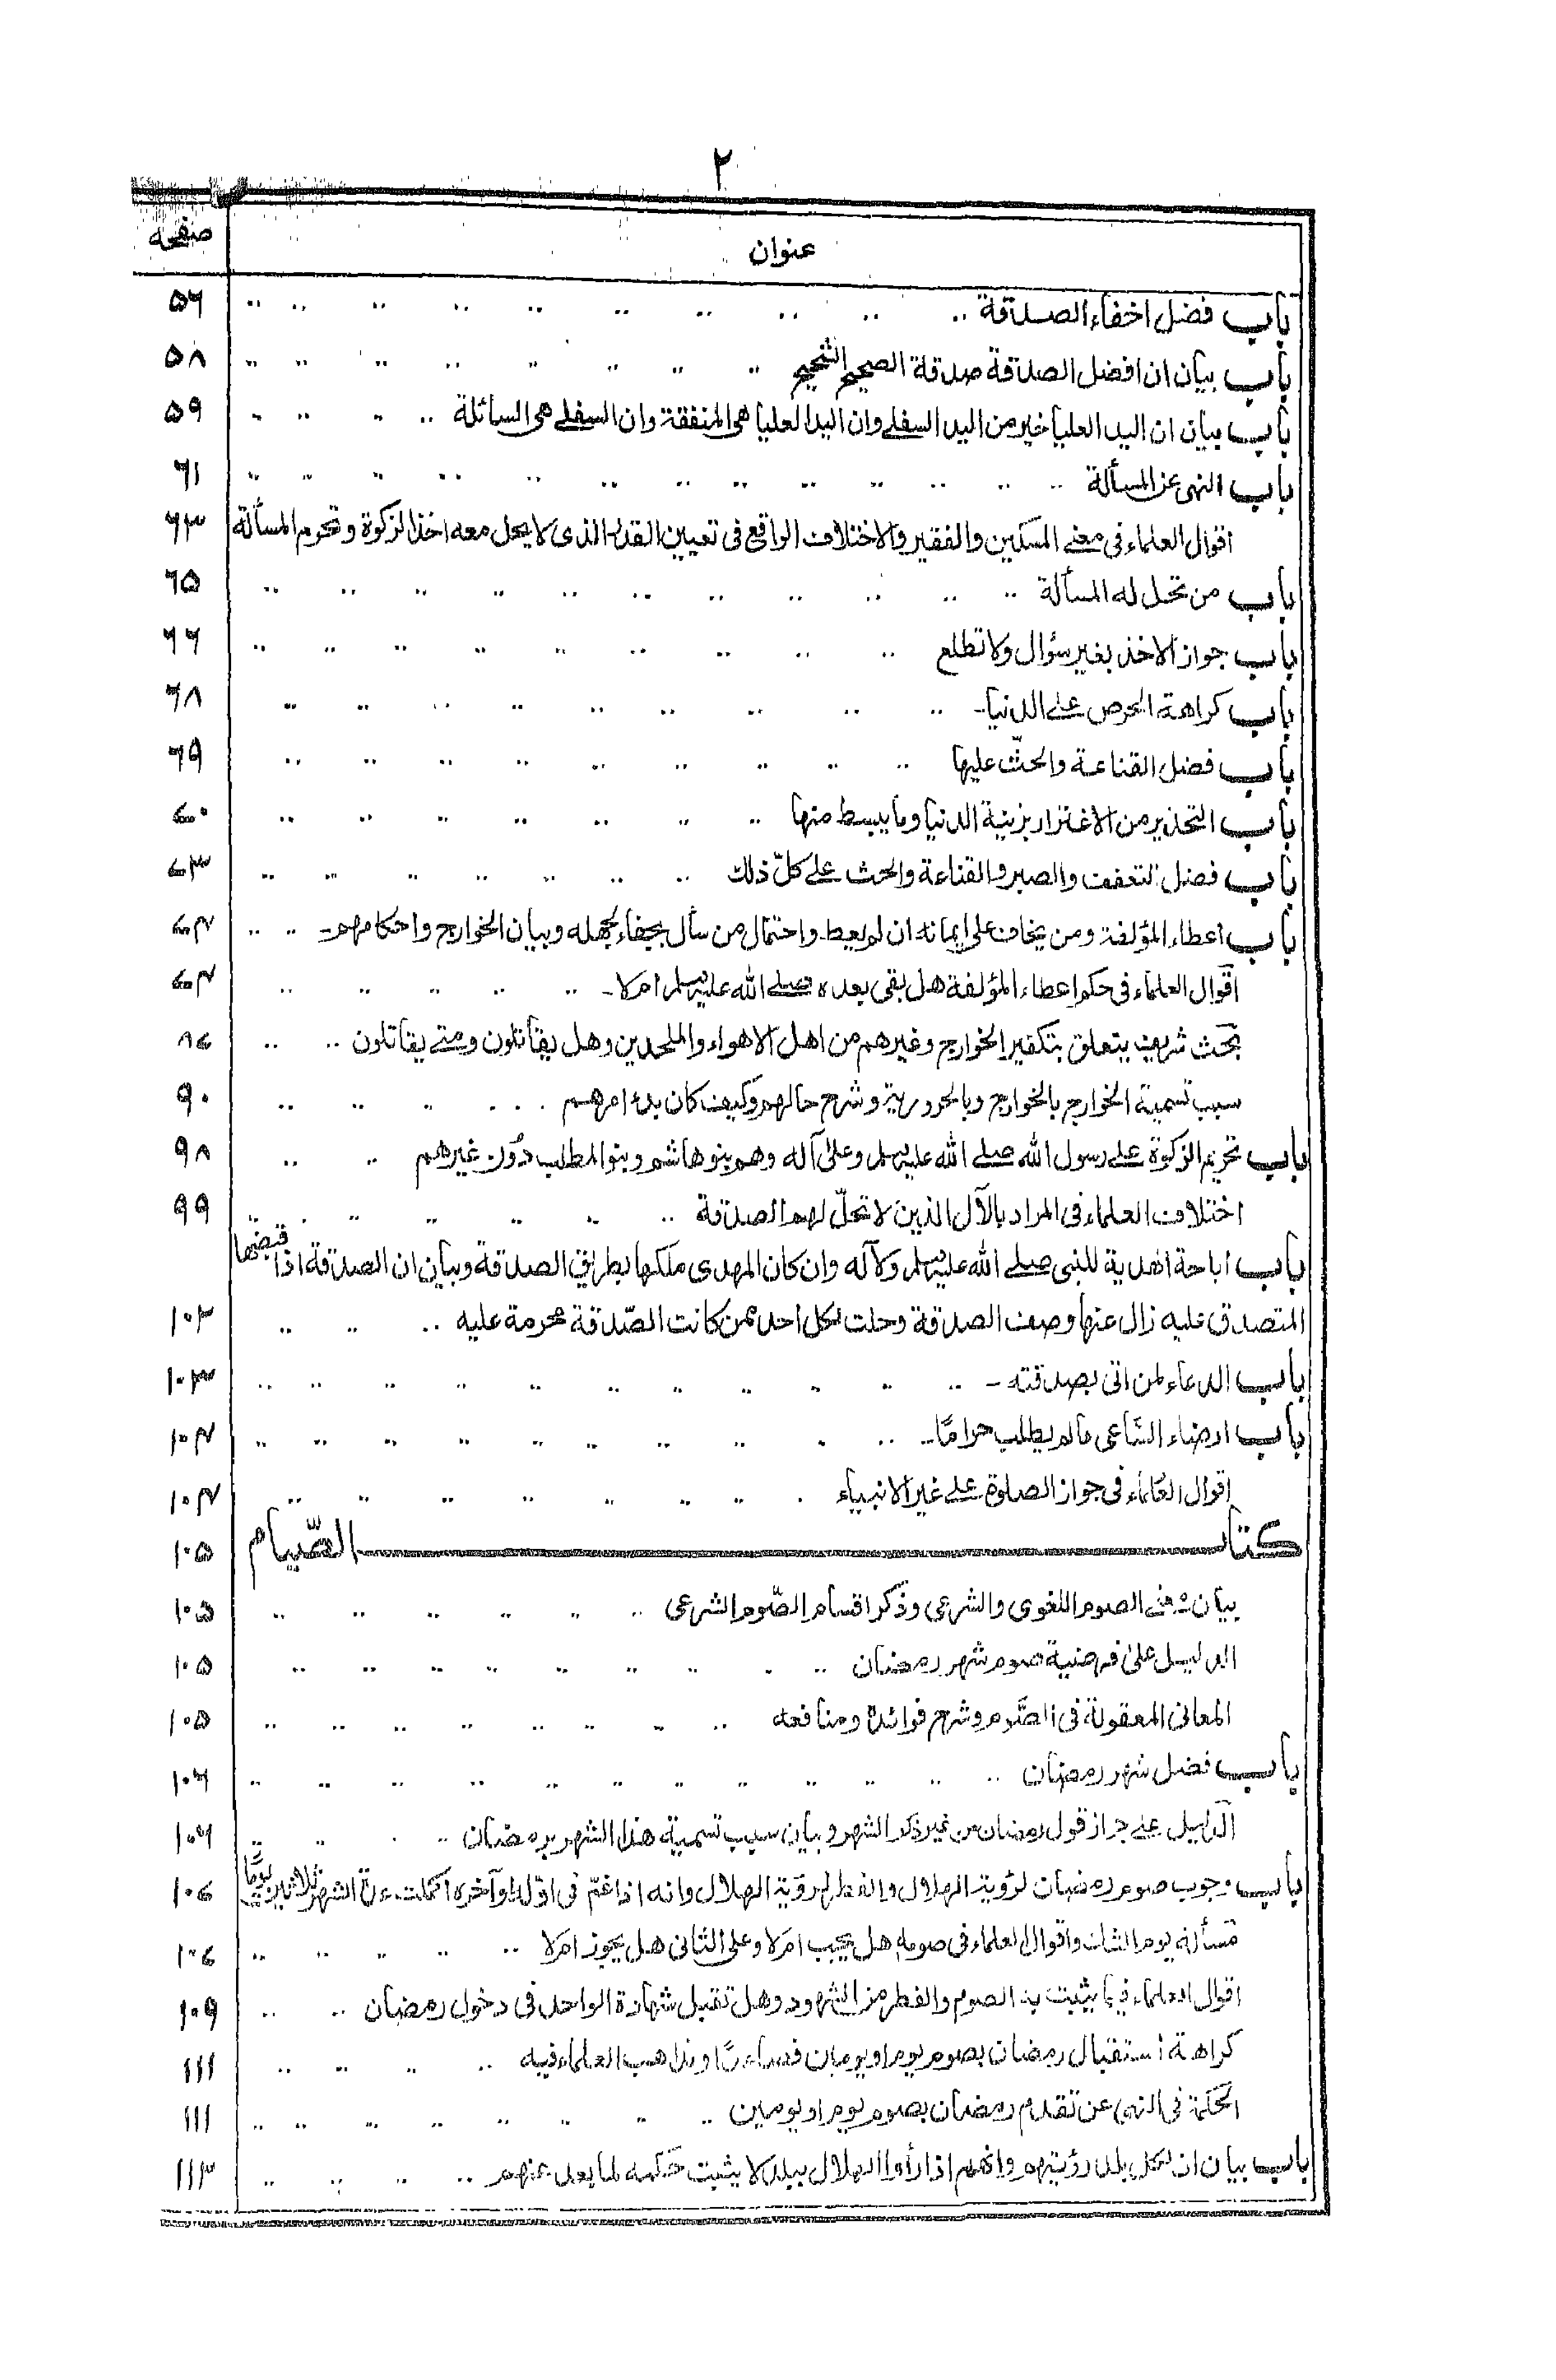 ٢
عنوان صفحه
باب فضل اخفاء الصدقة ۵۶
باب بيان ان افضل الصدقة صدقة الصحيح الشحيح ۵۸
باب بيان ان اليد العليا خير من اليد السفلے وان اليد العليا هى المنفقة وان السفلے هى السائلة ۵۹
باب النهى عن المسألة ۶۱
اقوال العلماء فى معنے المسكين والفقير والاختلاف الواقع فى تعيين القدر الذى لا يحل معه اخذ الزكوة وتحرم المسألة ۶۳
باب من تحل له المسألة ۶۵
باب جواز الاخذ بغير سؤال ولا تطلع ۶۶
باب كراهة الحرص علے الدنيا ۶۸
باب فضل القناعة والحثّ عليها ۶۹
باب التحذير من الاغترار بزينة الدنيا وما يبسط منها ۷۰
باب فضل التعفف والصبر والقناعة والحث علے كلّ ذلك ۷۳
باب اعطاء المؤلفة ومن يخاف على ايمانه ان لم يعط واحتمال من سأل بجفاء لجهله وبيان الخوارج واحكامهم ۷۴
اقوال العلماء فى حكم اعطاء المؤلفة هل بقى بعده صلے الله عليه وسلم ام لا ۷۴
بحث شريف يتعلق بتكفير الخوارج وغيرهم من اهل الاهواء والملحدين وهل يقاتلون ومتے يقاتلون ۸۷
سبب تسمية الخوارج بالخوارج وبالحرورية وشرح حالهم وكيف كان بدء امرهم ۹۰
باب تحريم الزكوة علے رسول الله صلے الله عليه وسلم وعلىٰ آله وهم بنو هاشم وبنو المطلب دون غيرهم ۹۸
اختلاف العلماء فى المراد بالآل الذين لا تحلّ لهم الصدقة ۹۹
باب اباحة الهدية للنبى صلے الله عليه وسلم ولآله وان كان المهدى ملكها بطريق الصدقة وبيان ان الصدقة اذا قبضها
المتصدق عليه زال عنها وصف الصدقة وحلت لكل احد ممن كانت الصّدقة محرمة عليه ۱۰۲
باب الدعاء لمن اتى بصدقته ۱۰۳
باب ارضاء السّاعى مالم يطلب حرامًا ۱۰۴
اقوال العلماء فى جواز الصلوة علے غير الانبياء ۱۰۴
كتاب الصّيام ۱۰۵
بيان معنے الصوم اللغوى والشرعى وذكر اقسام الصّوم الشرعى ۱۰۵
الدليل علىٰ فرضية صوم شهر رمضان ۱۰۵
المعانى المعقولة فى الصّوم وشرح فوائده ومنافعه ۱۰۵
باب فضل شهر رمضان ۱۰۶
الدليل علے جواز قول رمضان من غير ذكر الشهر وبيان سبب تسمية هذا الشهر برمضان ۱۰۶
باب وجوب صوم رمضان لرؤية الهلال والفطر لرؤية الهلال وانه اذا غمّ فى اوّله او آخره اكملت عدّة الشهر ثلاثين يومًا ۱۰۷
مسألة يوم الشك واقوال العلماء فى صومه هل يجب ام لا وعلى الثانى هل يجوز ام لا ۱۰۷
اقوال العلماء فيما يثبت به الصوم والفطر من الشهود وهل تقبل شهادة الواحد فى دخول رمضان ۱۰۹
كراهة استقبال رمضان بصوم يوم او يومان فصاعدًا ومذاهب العلماء فيه ۱۱۱
الحكمة فى النهى عن تقدم رمضان بصوم يوم او يومين ۱۱۱
باب بيان ان لكل بلد رؤيتهم وانهم اذا رأوا الهلال ببلد لا يثبت حكمه لما بعد عنهم ۱۱۳